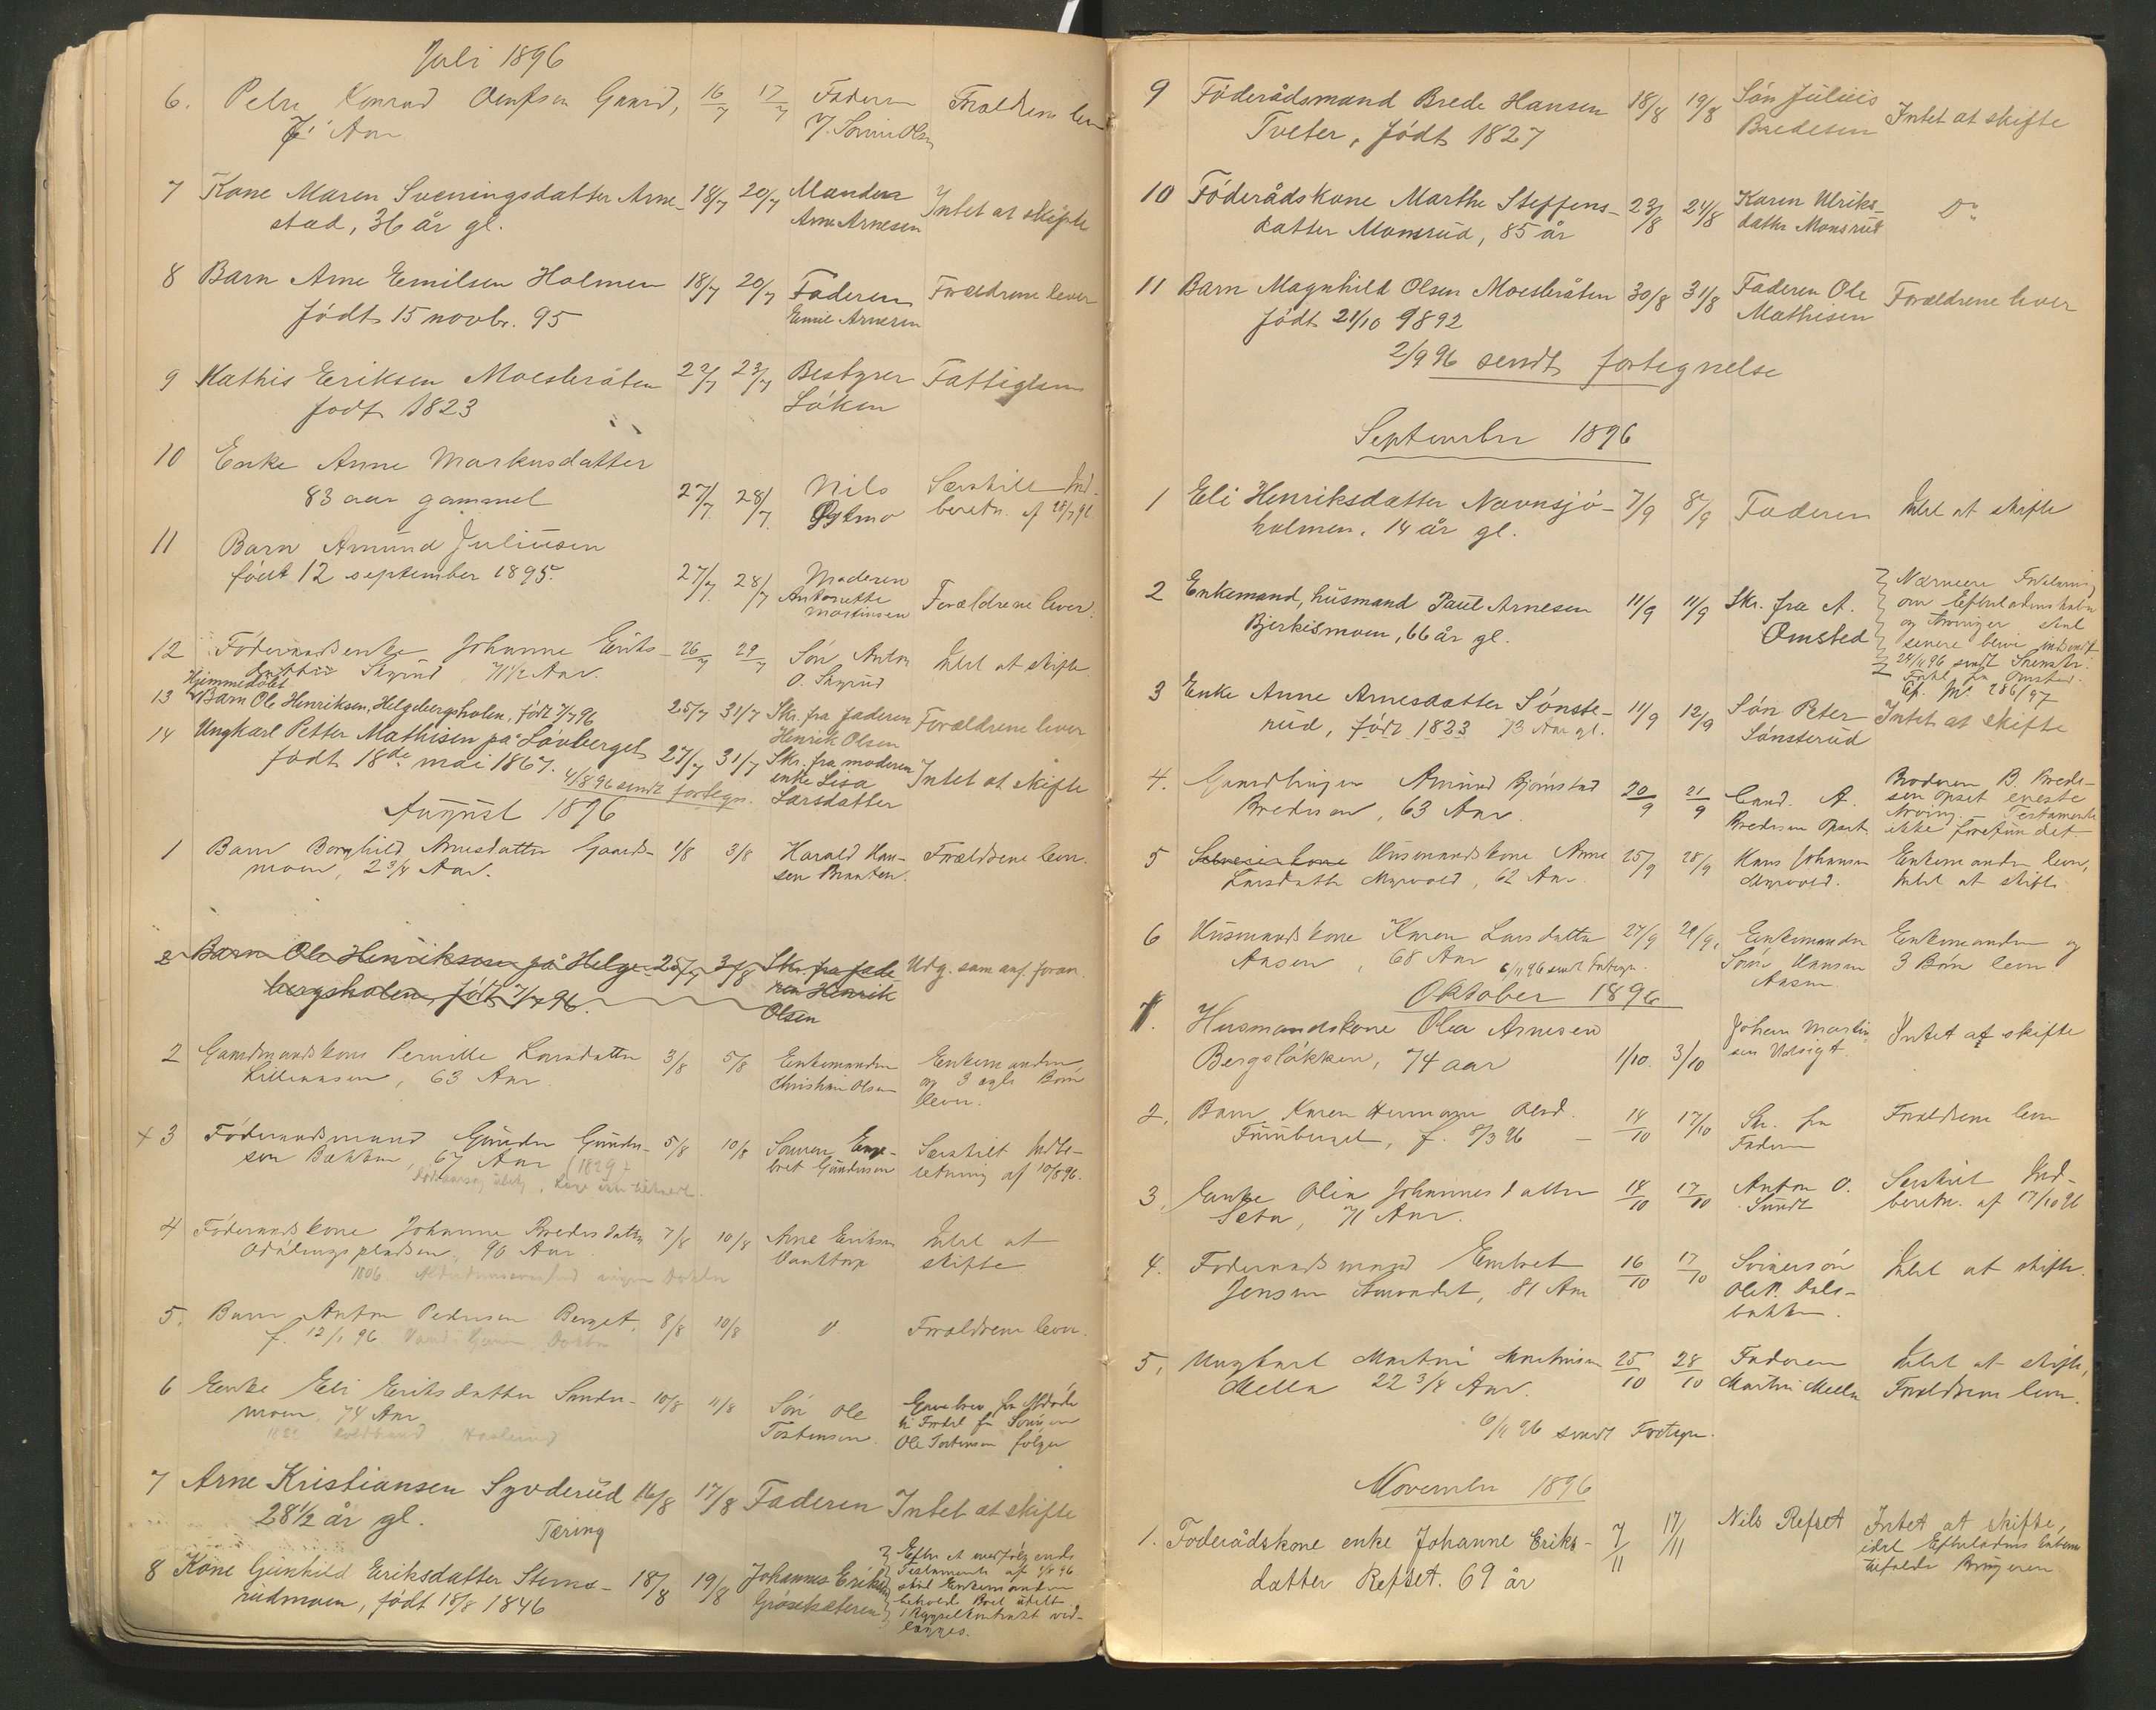 Juli 1896
6. Petra Konrad Olufsen Gaard, 16/7 17/7 Faderen Forældrene lever
6 Aar
7 Kone Maren Sveningsdatter Arne- 18/7 20/7 Manden Intet at skifte
stad, 36 år gl. Arne Arnesen
8 Barn Arne Emilsen Holmen 18/7 20/7 Faderen Forældrene lever
født 15 novbr. 95 Emil Arnesen
9 Mathis Eriksen Moesbråten 22/7 23/7 Bestyrer Fattiglem
født 1823 Løken
10 Enke Anne Markusdatter
83 aar gammel 27/7 28/7 Nils Særskilt Ind-
beretn. af 28/7 96
11 Barn Amund Juliussen
født 12 september 1895. 27/7 28/7 Moderen
Antonette Forældrene lever.
Martinsen
12 Føderaadsenke Johanne Eriks- 26/7 29/7 Søn Anton Intet at skifte
datter Skyrud, 71 1/2 Aar. O. Skyrud
Hjemmedøbt
13 Barn Ole Henriksen, Helgebergsholen, født 7/7 96 25/7 31/7 Skr. fra faderen Forældrene lever
Henrik Olsen
14 Ungkarl Petter Mathisen på Løvberget 27/7 31/7 Skr. fra moderen Intet at skifte
født 18de mai 1867. enke Lisa
4/8 96 sendt fortegn. Larsdatter
August 1896
1 Barn Borghild Arnesdatter Gaards- 1/8 3/8 Harald Han- Forældrene lever.
moen, 2 3/4 Aar. sen Braaten.
2 Barn Ole Henriksen på Helge- 25/7 3/8 Skr. fra fade Udg. som anf. foran
bergsholen, født 7/7 96. ren Henrik
Olsen
2 Gaardmandskone Pernille Larsdatter 3/8 5/8 Enkemanden Enkemanden
Lilleaasen, 63 Aar. Christian Olsen og 3 Børn
lever.
+ 3 Føderaadsmand Gunder Gunder- 5/8 10/8 Sønnen Enge- Særskilt Indbe-
sen Bakken, 67 Aar (1829) bret Gundersen retning af 10/8 96.
4 Føderaadskone Johanne Bredesdatter 7/8 10/8 Arne Eriksen Intet at
Odalingspladsen, 90 Aar skifte
1806.
5. Barn Anton Pedersen Berget, 8/8 10/8 Forældrene lever.
f. 12/1 96
6 Enke Eli Eriksdatter Sander- 10/8 11/8 Søn Ole
moen 74 Aar Tostensen
Ole Tostensen følger
7 Arne Kristiansen Syverud 16/8 17/8 Faderen Intet at skifte
28 1/2 år gl. Tæring
8 Kone Gunhild Eriksdatter Stens- 18/8 19/8 Johannes Eriksen Efter et medfølgende
rudmoen, født 18/8 1846 Grøsetsæteren Testamente af 3/8 96
skal Enkemanden
beholde Boet udelt.
9 Føderådsmand Brede Hansen 18/8 19/8 Søn Julius Intet at skifte
Tveter, født 1827 Bredesen
10 Føderådskone Marthe Steffens- 23/8 24/8 Karen Ulriks- Do
datter Monsrud, 85 år datter Monsrud
11 Barn Magnhild Olsen Moesbråten 30/8 31/8 Faderen Ole Forældrene lever
født 21/10 1892 Mathisen
2/9 96 sendt fortegnelse
September 1896
1 Eli Henriksdatter Navnsjø- 7/9 8/9 Faderen Intet at skifte
holmen, 14 år gl.
2 Enkemand, husmand Paul Arnesen 11/9 11/9 Skr. fra A. Nærmere Indberetning
Bjerkismoen, 66 år gl. Omsted om Efterladenskaber
og Arvinger skal
senere blive indsendt
Cf. No 286/97
3 Enke Anne Arnesdatter Sønste- 11/9 12/9 Søn Peter Intet at skifte
rud, født 1823 73 Aar gl. Sønsterud
4. Gaardbruger Amund Bjørnstad 20/9 21/9 Cand. A. Broderen B. Brede-
Bredesen, 63 Aar. Bredesen Opset sen Opset eneste
Arving. Testamente
ikke forefundet.
5 Husmandskone Anne 25/9 28/9 Hans Johansen Enkemanden lever,
Larsdatter Myrvold, 62 Aar Myrvold. Intet at skifte
6 Husmandskone Karen Larsdatter 27/9 29/9 Enkemanden Enkemanden og
Aasen, 68 Aar Hansen 3 Børn lever
6/11 96 sendt Fortegn. Aasen
Oktober 1896
1. Husmandskone Olea Arnesen Johan Martin- Intet at skifte
Bergsløkken, 74 aar 1/10. 3/10 sen Udsigt.
2. Barn Karen Hermana Olsd. 14/10 17/10 Skr. fra Forældrene lever
Furuberget, f. 8/3 96 Faderen
3. Enke Olia Johannesdatter 14/10 17/10 Anton O. Særskilt Ind-
71 Aar. Sundt beretn. af 17/10 96
4. Føderaadsmand Embret 16/10 17/10 Svigersøn Intet at skifte.
Jensen 81 Aar Ole P. Dals-
bakken.
5. Ungkarl Martin Martinsen 25/10 28/10 Faderen Intet at skifte,
Mella 22 3/4 Aar. Martin Mella Forældrene lever.
6/11 96 sendt Fortegn.
November 1896
1. Føderådskone enke Johanne Eriks- 7/11 17/11 Nils Refset Intet at skifte,
datter Refset. 69 år